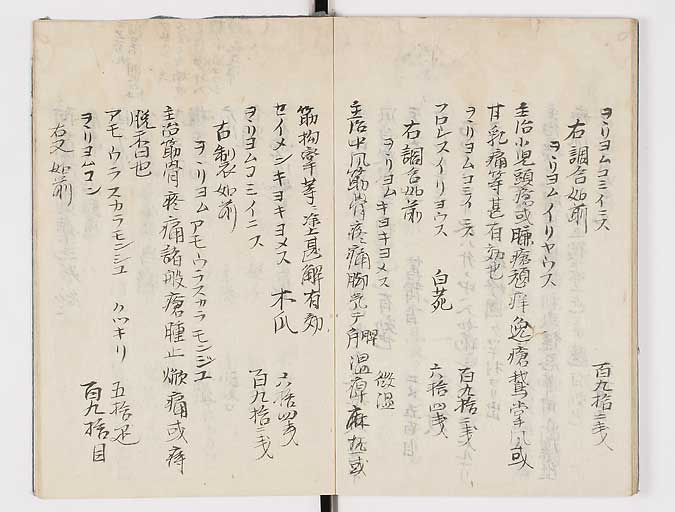 ヲヽリヨムコミイニス 百九拾二匁
右調合如前
ヲヽリヨムイリヤウス
主治小児頭瘡或臁瘡頑痒 瘡鵞掌风或
甘乳痛等甚有効也
ヲヽリヨムコミイニス 百九拾二匁
フロレスイリヨウス 白苑 六拾四匁
右調合如前
ヲヽリヨムキヨキヨメス 微温
主治中风筋骨疼痛脚気 温痺麻 或
筋拘挛等塗甚解有効
セイメンキヨキヨメス 木瓜 六拾四匁
ヲヽリヨムコミイニス 百九拾二匁
右製如前
ヲヽリヨムアモウラスカラモンジユ
主治筋骨疼痛諸般瘡腫止焮痛或痔
脱肛也
アモウラスカラモンジユ ハツキリ 五拾疋
ヲヽリヨムコン 百九拾目
右又如前